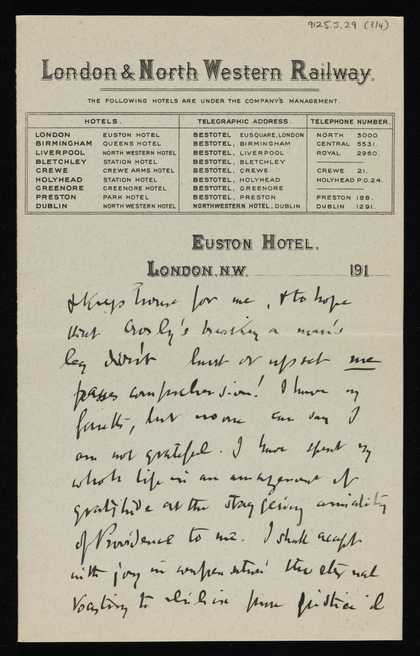 9125.J.29 (3/4)
London & North Western Railway.
THE FOLLOWING HOTELS ARE UNDER THE COMPANY'S MANAGEMENT.
HOTELS. TELEGRAPHIC ADDRESS. TELEPHONE NUMBER.
LONDON EUSTON HOTEL BESTOTEL, EUSQUARE, LONDON NORTH 3000.
BIRMINGHAM QUEENS HOTEL BESTOTEL, BIRMINGHAM CENTRAL 5531.
LIVERPOOL NORTH WESTERN HOTEL BESTOTEL, LIVERPOOL ROYAL 2960.
BLETCHLEY STATION HOTEL BESTOTEL, BLETCHLEY
CREWE CREWE ARMS HOTEL BESTOTEL, CREWE CREWE 21.
HOLYHEAD STATION HOTEL BESTOTEL, HOLYHEAD HOLYHEAD P.O. 24.
GREENORE GREENORE HOTEL BESTOTEL, GREENORE
PRESTON PARK HOTEL BESTOTEL, PRESTON PRESTON 188.
DUBLIN NORTH WESTERN HOTEL NORTHWESTERN HOTEL, DUBLIN DUBLIN 1291.
EUSTON HOTEL.
LONDON, N.W. 191
& keeps house for me, & to hope
that breaking a man's
leg didn't hurt or upset me
passes comprehension! I have my
faults, but no one can say I
am not grateful. I have spent my
whole life in an of
gratitude at the staggering amiability
of Providence to me. I shall accept
with joy in compensation the eternal
roasting to pure justice